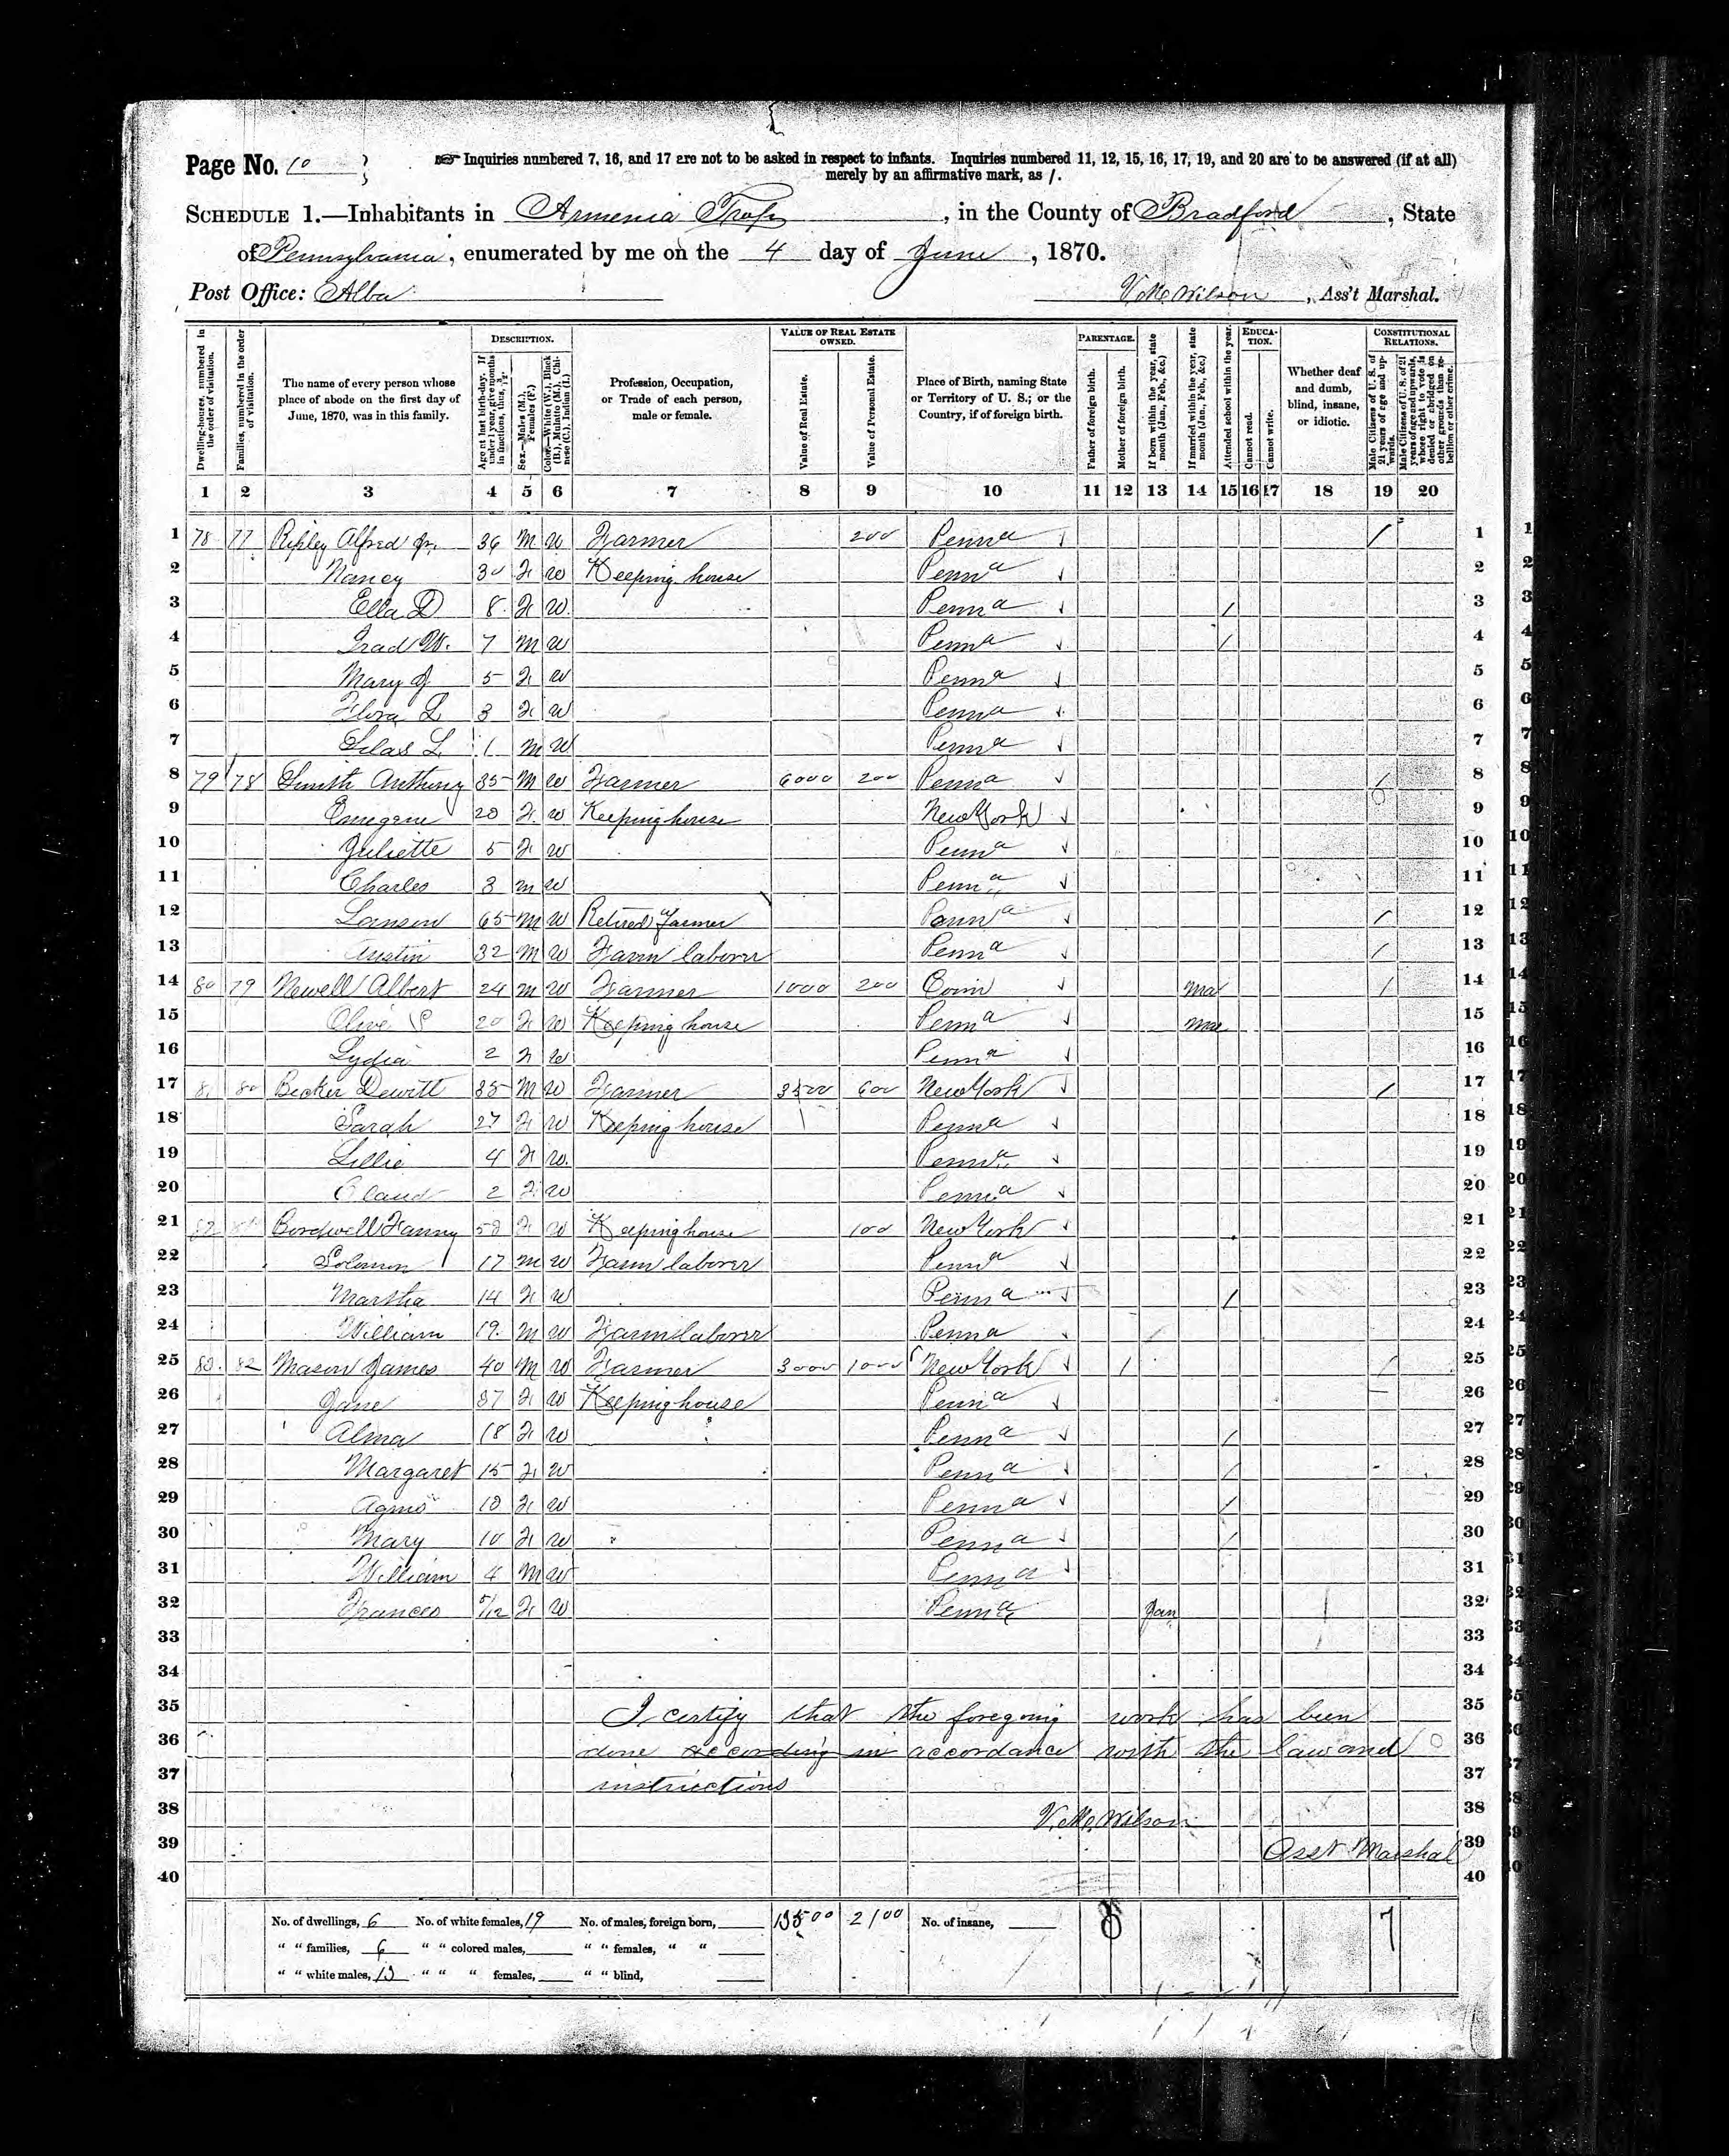 Page No. 10 } ☞ Inquiries numbered 7, 16, and 17 are not to be asked in respect to infants. Inquiries numbered 11, 12, 15, 16, 17, 19, and 20 are to be answered (if at all)
merely by an affirmative mark, as /.
SCHEDULE 1.—Inhabitants in Armenia Twsp, in the County of Bradford, State
of Pennsylvania, enumerated by me on the 4 day of June, 1870.
Post Office: Alba V. Mc Wilson, Ass't Marshal.
Dwelling-houses, numbered in the order of visitation.
Families, numbered in the order of visitation.
The name of every person whose place of abode on the first day of June, 1870, was in this family.
DESCRIPTION.
Age at last birth-day. If under 1 year, give months in fractions, thus, 3/12.
Sex.—Males (M.), Females (F.)
Color.—White (W.), Black (B.), Mulatto (M.), Chinese (C.), Indian (I.)
Profession, Occupation, or Trade of each person, male or female.
VALUE OF REAL ESTATE OWNED.
Value of Real Estate.
Value of Personal Estate.
Place of Birth, naming State or Territory of U. S.; or the Country, if of foreign birth.
PARENTAGE.
Father of foreign birth.
Mother of foreign birth.
If born within the year, state month (Jan., Feb., &c.)
If married within the year, state month (Jan., Feb., &c.)
Attended school within the year.
EDUCATION.
Cannot read.
Cannot write.
Whether deaf and dumb, blind, insane, or idiotic.
CONSTITUTIONAL RELATIONS.
Male Citizens of U. S. of 21 years of age and upwards.
Male Citizens of U. S. of 21 years of age and upwards, whose right to vote is denied or abridged on other grounds than rebellion or other crime.
1 2 3 4 5 6 7 8 9 10 11 12 13 14 15 16 17 18 19 20
1 78 77 Ripley Alfred Jr. 36 M W Farmer 200 Penna / 1
2 Nancy 30 F W Keeping house Penna 2
3 Ella D 8 F W Penna / 3
4 W. 7 M W Penna / 4
5 Mary J 5 F W Penna 5
6 Flora L 3 F W Penna 6
7 Silas L 1 M W Penna 7
8 79 78 Smith Anthony 35 M W Farmer 6000 200 Penna / 8
9 Emegene 20 F W Keeping house New York 9
10 Juliette 5 F W Penna 10
11 Charles 3 M W Penna 11
12 Lanson 65 M W Retired Farmer Penna / 12
13 Austin 32 M W Farm laborer Penna / 13
14 80 79 Newell Albert 24 M W Farmer 1000 200 Conn Mar / 14
15 Olive P 20 F W Keeping house Penna Mar 15
16 Lydia 2 F W Penna 16
17 81 80 Becker Dewitt 35 M W Farmer 3500 600 New York / 17
18 Sarah 27 F W Keeping house Penna 18
19 Lillie 4 F W Penna 19
20 Claud 2 F W Penna 20
21 82 81 Bordwell Fanny 58 F W Keeping house 100 New York 21
22 Solomon 17 M W Farm laborer Penna 22
23 Martha 14 F W Penna / 23
24 William 19 M W Farm laborer Penna 24
25 83 82 Mason James 40 M W Farmer 3000 1000 New York / / 25
26 Jane 37 F W Keeping house Penna 26
27 Alma 18 F W Penna / 27
28 Margaret 15 F W Penna / 28
29 Agnes F W Penna / 29
30 Mary 10 F W Penna / 30
31 William 4 M W Penna 31
32 Frances 5/12 F W Penna Jan 32
33 33
34 34
35 I certify that the foregoing work has been 35
36 done according in accordance with the law and 36
37 instructions 37
38 V. Mc. Wilson 38
39 Asst Marshal 39
40 40
No. of dwellings, 6 No. of white females, 19 No. of males, foreign born, 13500 2100 No. of insane, 7
" " families, 6 " " colored males, " " females, " "
" " white males, 13 " " " females, " " blind,